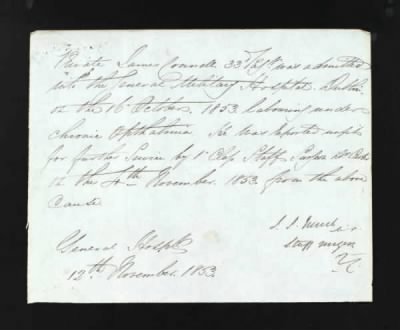 Private James Connell 33rd Regt was admitted
into the General Military Hospital Dublin
on the 16 October 1853 labouring under
chronic Opthalmia He was reported unfit
for further Service by 1st Class Staff Surgeon
on the 4th November 1853 from the above
Cause
General Hospl
12th November 1853
Staff Surgeon